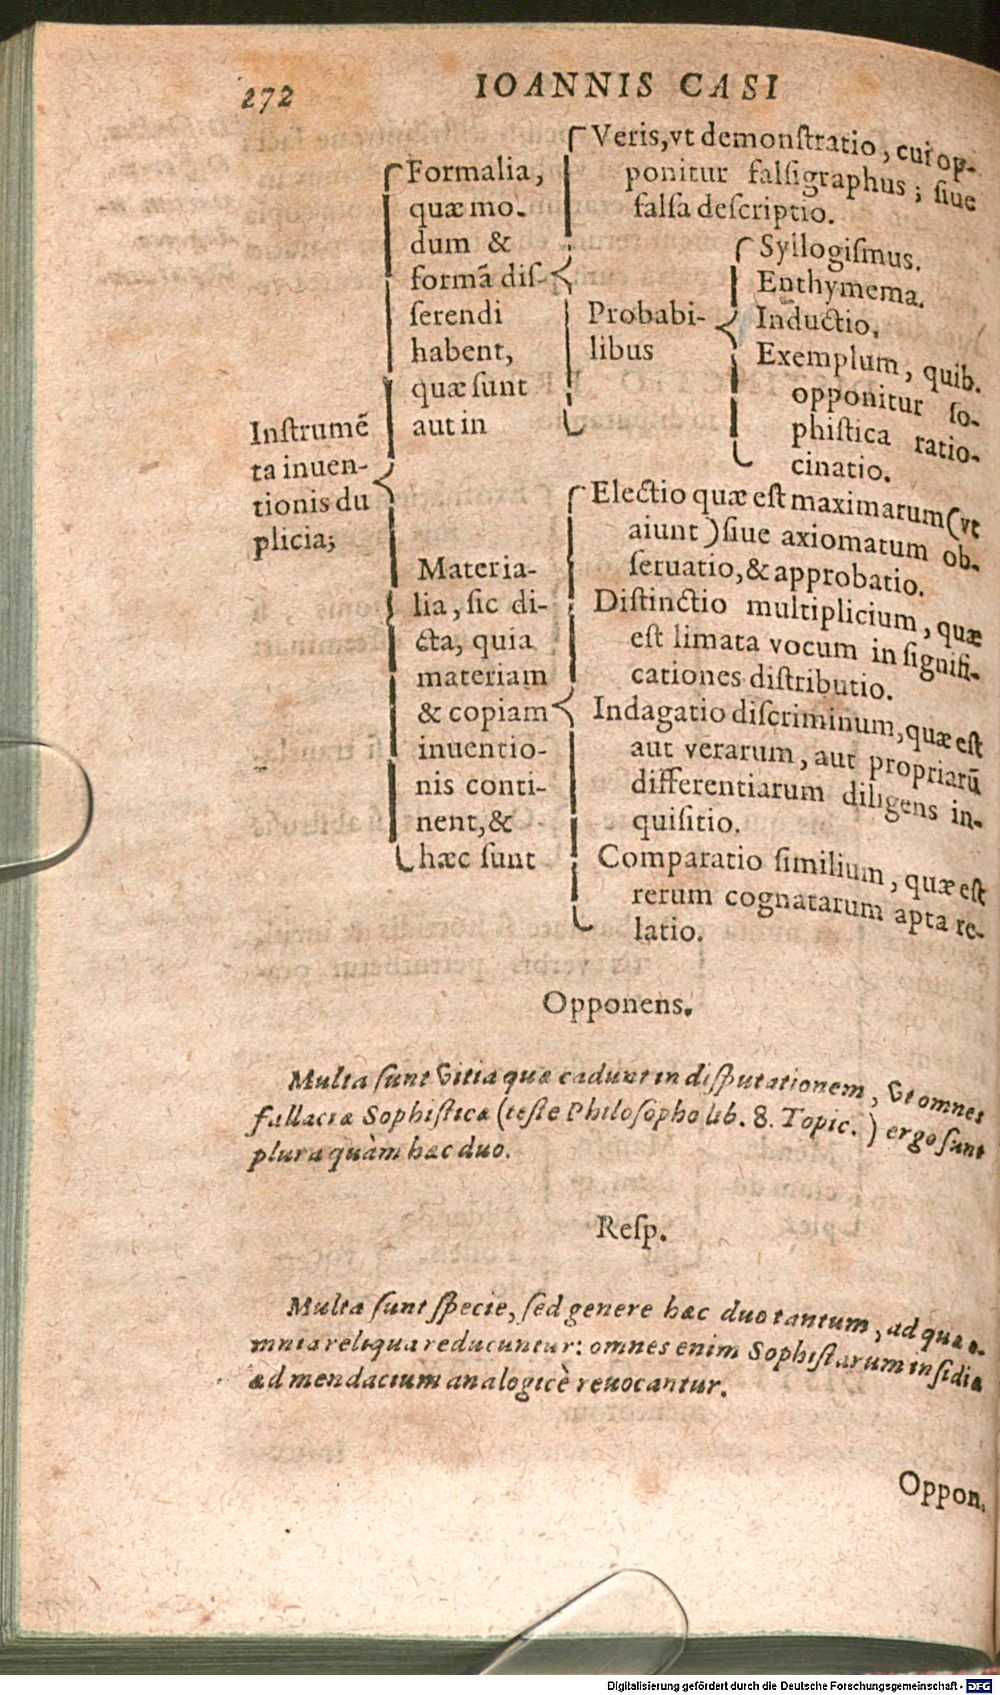 272
IOANNIS CASI
Instrumē
ta inuen-
tionis du
plicia;
Formalia,
quæ mo-
dum &
formā dis-
serendi
habent,
quæ sunt
aut in
Veris, vt demonſtratio, cui op-
ponitur falſigraphus; ſiue
falſa deſcriptio.
Probabi-
libus
Syllogiſmus.
Enthymema.
Inductio.
Exemplum, quib.
opponitur ſo-
phiſtica ratio-
cinatio.
Materia-
lia, ſic di-
cta, quia
materiam
& copiam
inuentio-
nis conti-
nent, &
hæc ſunt
Electio quæ eſt maximarum (vt
aiunt) ſiue axiomatum ob-
ſeruatio, & approbatio.
Diſtinctio multiplicium, quæ
eſt limata vocum in ſignifi-
cationes diſtributio.
Indagatio diſcriminum, quæ eſt
aut verarum, aut propriarū
differentiarum diligens in-
quiſitio.
Comparatio ſimilium, quæ eſt
rerum cognatarum apta re-
latio.
Opponens.
Multa ſunt vitia quæ cadunt in diſputationem, vt omnes
fallaciæ Sophiſticæ (teſte Philoſopho lib. 8. Topic.) ergo ſunt
plura quàm hæc duo.
Reſp.
Multa ſunt ſpecie, ſed genere hæc duo tantum, ad quæ o-
mnia reliqua reducuntur: omnes enim Sophiſtarum inſidiæ
ad mendacium analogicè reuocantur.
Oppon.
Digitalisierung gefördert durch die Deutsche Forschungsgemeinschaft - DFG